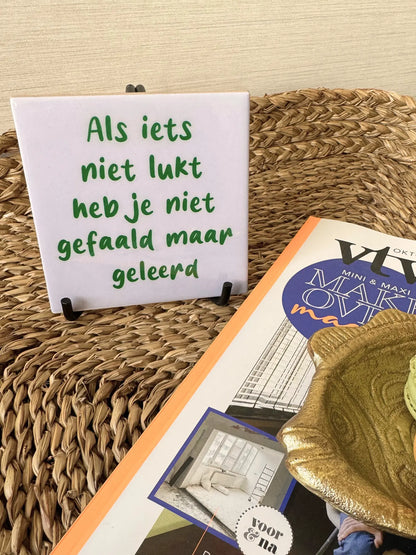 Als iets
niet lukt
heb je niet
gefaald maar
geleerd
OKT
vtw
MINI & MAXI
MAKE
OVER
voor
& na